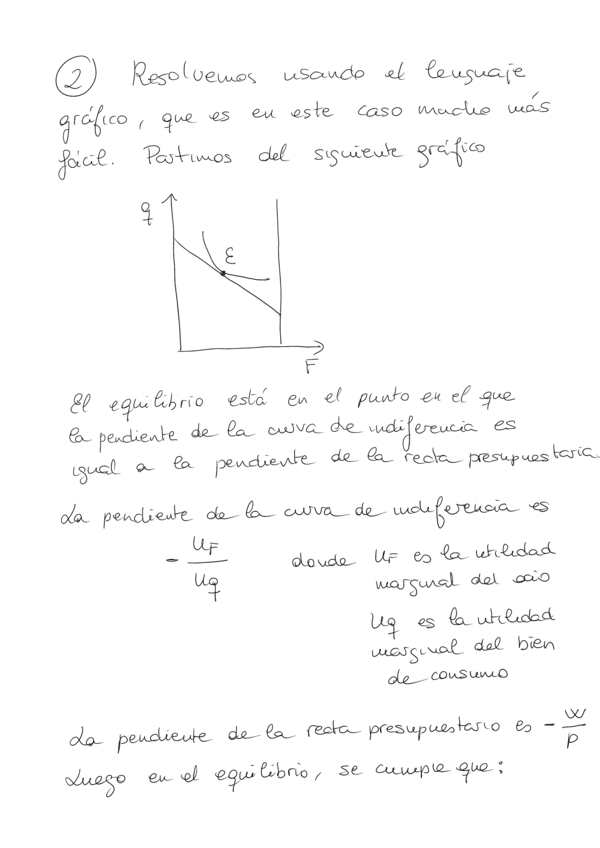 ② Resolvemos usando el lenguaje
gráfico, que es en este caso mucho más
fácil. Partimos del siguiente gráfico
q
E
F
El equilibrio está en el punto en el que
la pendiente de la curva de indiferencia es
igual a la pendiente de la recta presupuestaria.
La pendiente de la curva de indiferencia es
- UF / Uq donde UF es la utilidad
marginal del ocio
Uq es la utilidad
marginal del bien
de consumo
La pendiente de la recta presupuestario es - w/p
Luego en el equilibrio, se cumple que: